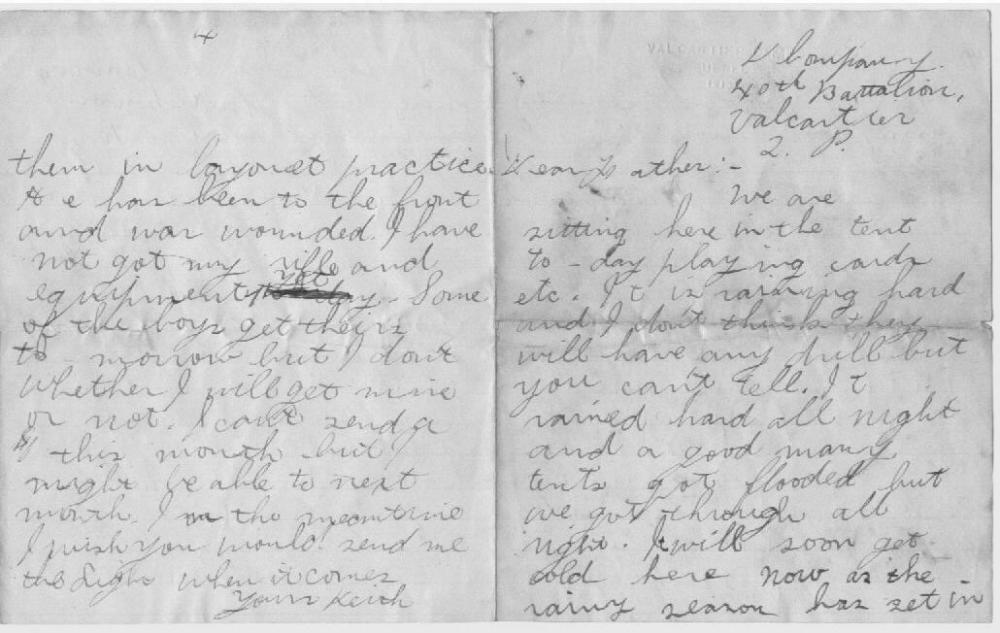 D Company.
40th Battalion,
Valcartier
2. P.
Dear Father:-
We are
sitting here in the tent
to-day playing cards
etc. It is raining hard
and I don't think they
will have any drill but
you can't tell. It
rained hard all night
and a good many
tents got flooded but
we got through all
right. It will soon get
cold here now as the
rainy season has set in
4
them in bayonet practice.
He has been to the front
and was wounded. I have
not got my rifle and
equipment yet. Some
of the boys get theirs
to-morrow but I don't
whether I will get mine
or not. I can't send a
this month but I
might be able to next
month. In the meantime
I wish you would send me
the Light when it comes
Yours Keith